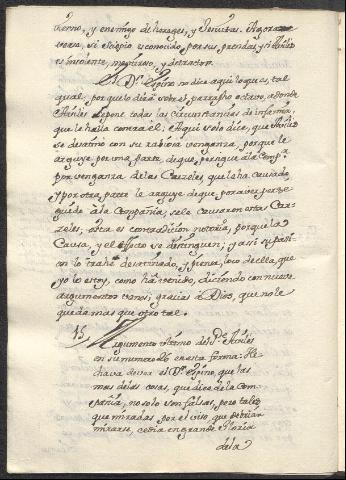 terno, y enemigo de herages, y Jesuitas. Agora se
vera, si Scipio es conocido por sus prendas, y si Aviles
es insolente, mentiroso, y detractor.
El Dr. Espino no dice aqui lo que es, tal
qual, porque lo dirá sobre el parrapho octavo, adonde
Aviles depone todas las circunstancias de infamia,
que le halla contra él; Aqui solo dice, que Aviles
se desatino con su rabiosa venganza, porque le
arguye por una parte, de que, persigue à la Compa.
por venganza de las Carzeles, que le ha causado,
y por otra parte le arguye de que, por aver perse-
guido à la Compañia, se le causaron estas Car-
zeles; esta es contradicion notoria, porque la
Causa, y el efecto se distinguen; y asi su pasi-
on lo trahe desatinado, y piensa, loco de ella, que
yo lo estoy, como ha mentido, diciendo con nueve
argumentos vanos; gracias à Dios, que no le
queda mas que otro tal.
15. Argumento ultimo del Pe. Aviles
en su numero 26 en esta forma: He
chava de ver el Dr. Espino, que las
mas de las cosas, que dice de la Com-
pañia, no solo son falsas, pero tales
que miradas por el viso, que debrian
mirarse, cedia en grande Gloria
de la